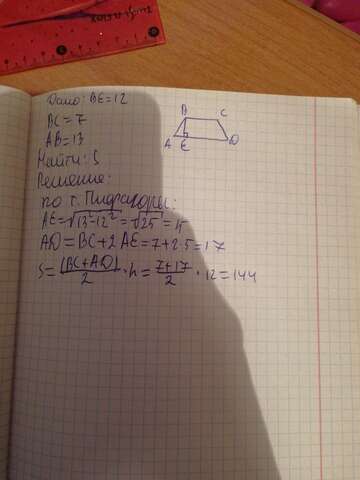 Дано: BE=12
BC=7
AB=13
Найти: S
Решение:
по т. Пифагоры:
AE=√13²-12²=√25=5
AD=BC+2AE=7+2·5=17
S=(BC+AD)/2·h=7+17/2·12=144
B C
A E D